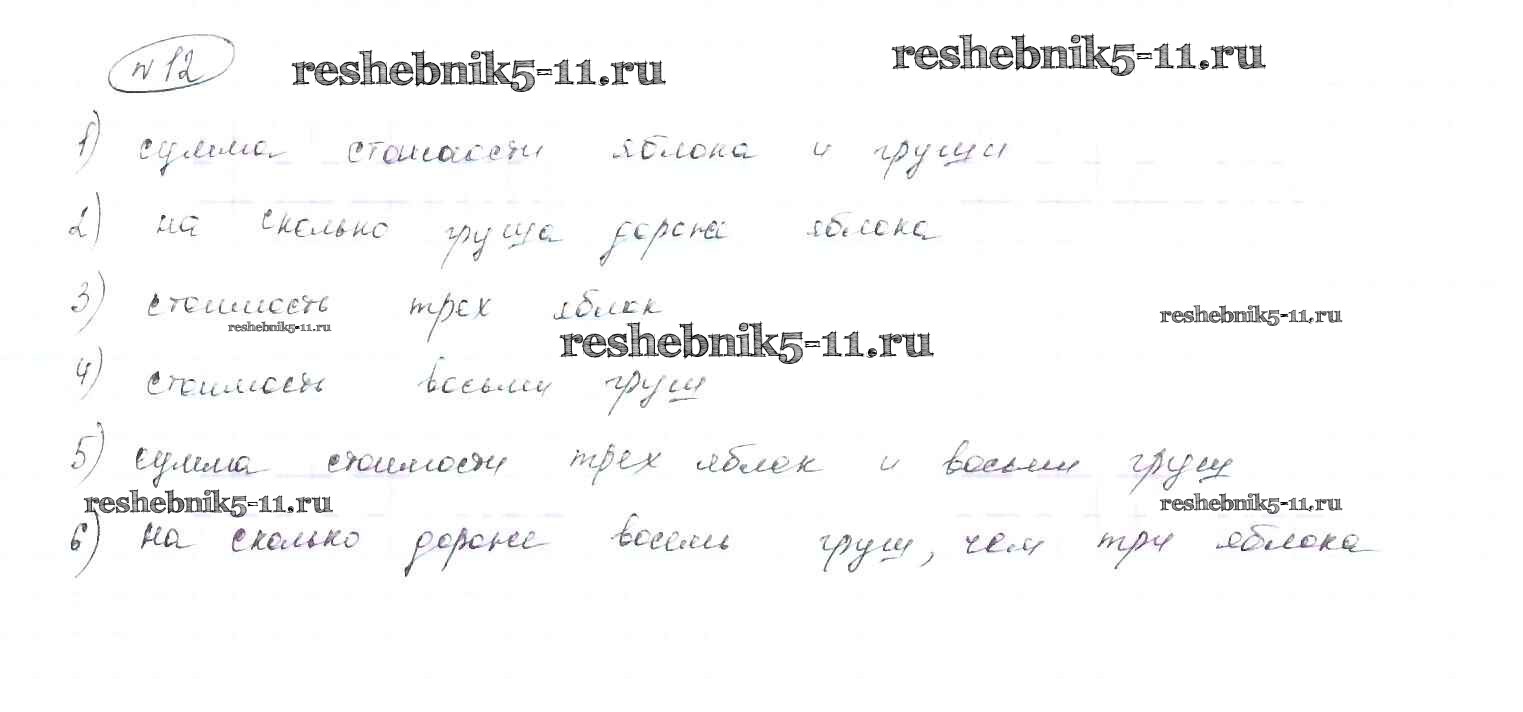 № 12
reshebnik5-11.ru reshebnik5-11.ru
1) сумма стоимости яблока и груши
2) на сколько груша дороже яблока
3) стоимость трех яблок
reshebnik5-11.ru reshebnik5-11.ru reshebnik5-11.ru
4) стоимость восьми груш
5) сумма стоимости трех яблок и восьми груш
reshebnik5-11.ru reshebnik5-11.ru
6) на сколько дороже восемь груш, чем три яблока